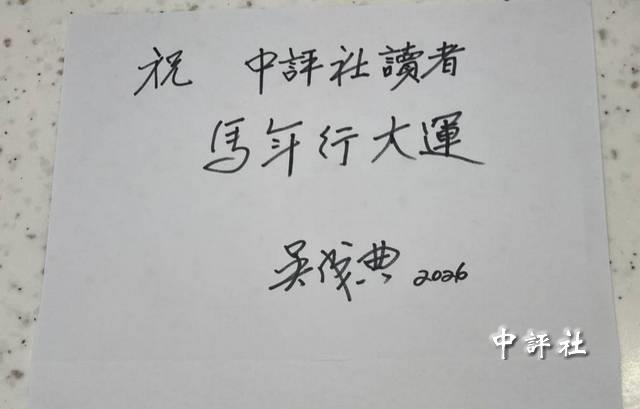 祝 中評社讀者
馬年行大運
吳成典 2026
中評社